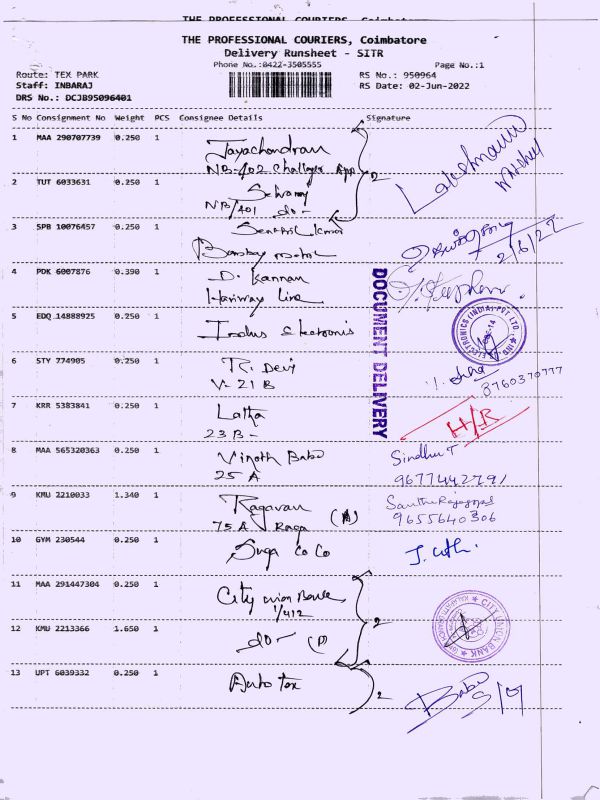 THE PROFESSIONAL COURIERS, Coimbatore
THE PROFESSIONAL COURIERS, Coimbatore
Delivery Runsheet - SITR
Phone No.:0422-3505555 Page No.:1
Route: TEX PARK RS No.: 950964
Staff: INBARAJ RS Date: 02-Jun-2022
DRS No.: DCJB95096401
S No Consignment No Weight PCS Consignee Details Signature
1 MAA 290707739 0.250 1 Jayachandran
NB-402 App
2 TUT 6033631 0.250 1 Selvaraj
NB/401 do- 2
3 SPB 10076457 0.250 1 Senthil Kumar
Bombay motor 2/6/22
4 PDK 6007876 0.390 1 D. Kannan
Hariway Line
DOCUMENT DELIVERY
5 EDQ 14888925 0.250 1 Indus Electronis
ELECTRONICS (INDIA) PVT LTD.
6 STY 774905 0.250 1 R. Devi
V- 21 B 8760370777
7 KRR 5383841 0.250 1 Latha H/R
23 B -
8 MAA 565320363 0.250 1 Vinoth Babu Sindhu T
25 A 9677442791
9 KMU 2210033 1.340 1 Ragavan
75 A Raga (A) 9655640306
10 GYM 230544 0.250 1 Suga Co Co
11 MAA 291447304 0.250 1 City union Bank
1/412
12 KMU 2213366 1.650 1 do- (P) 2
CITY UNION BANK
13 UPT 6039332 0.250 1 Auto tex 2 Babu